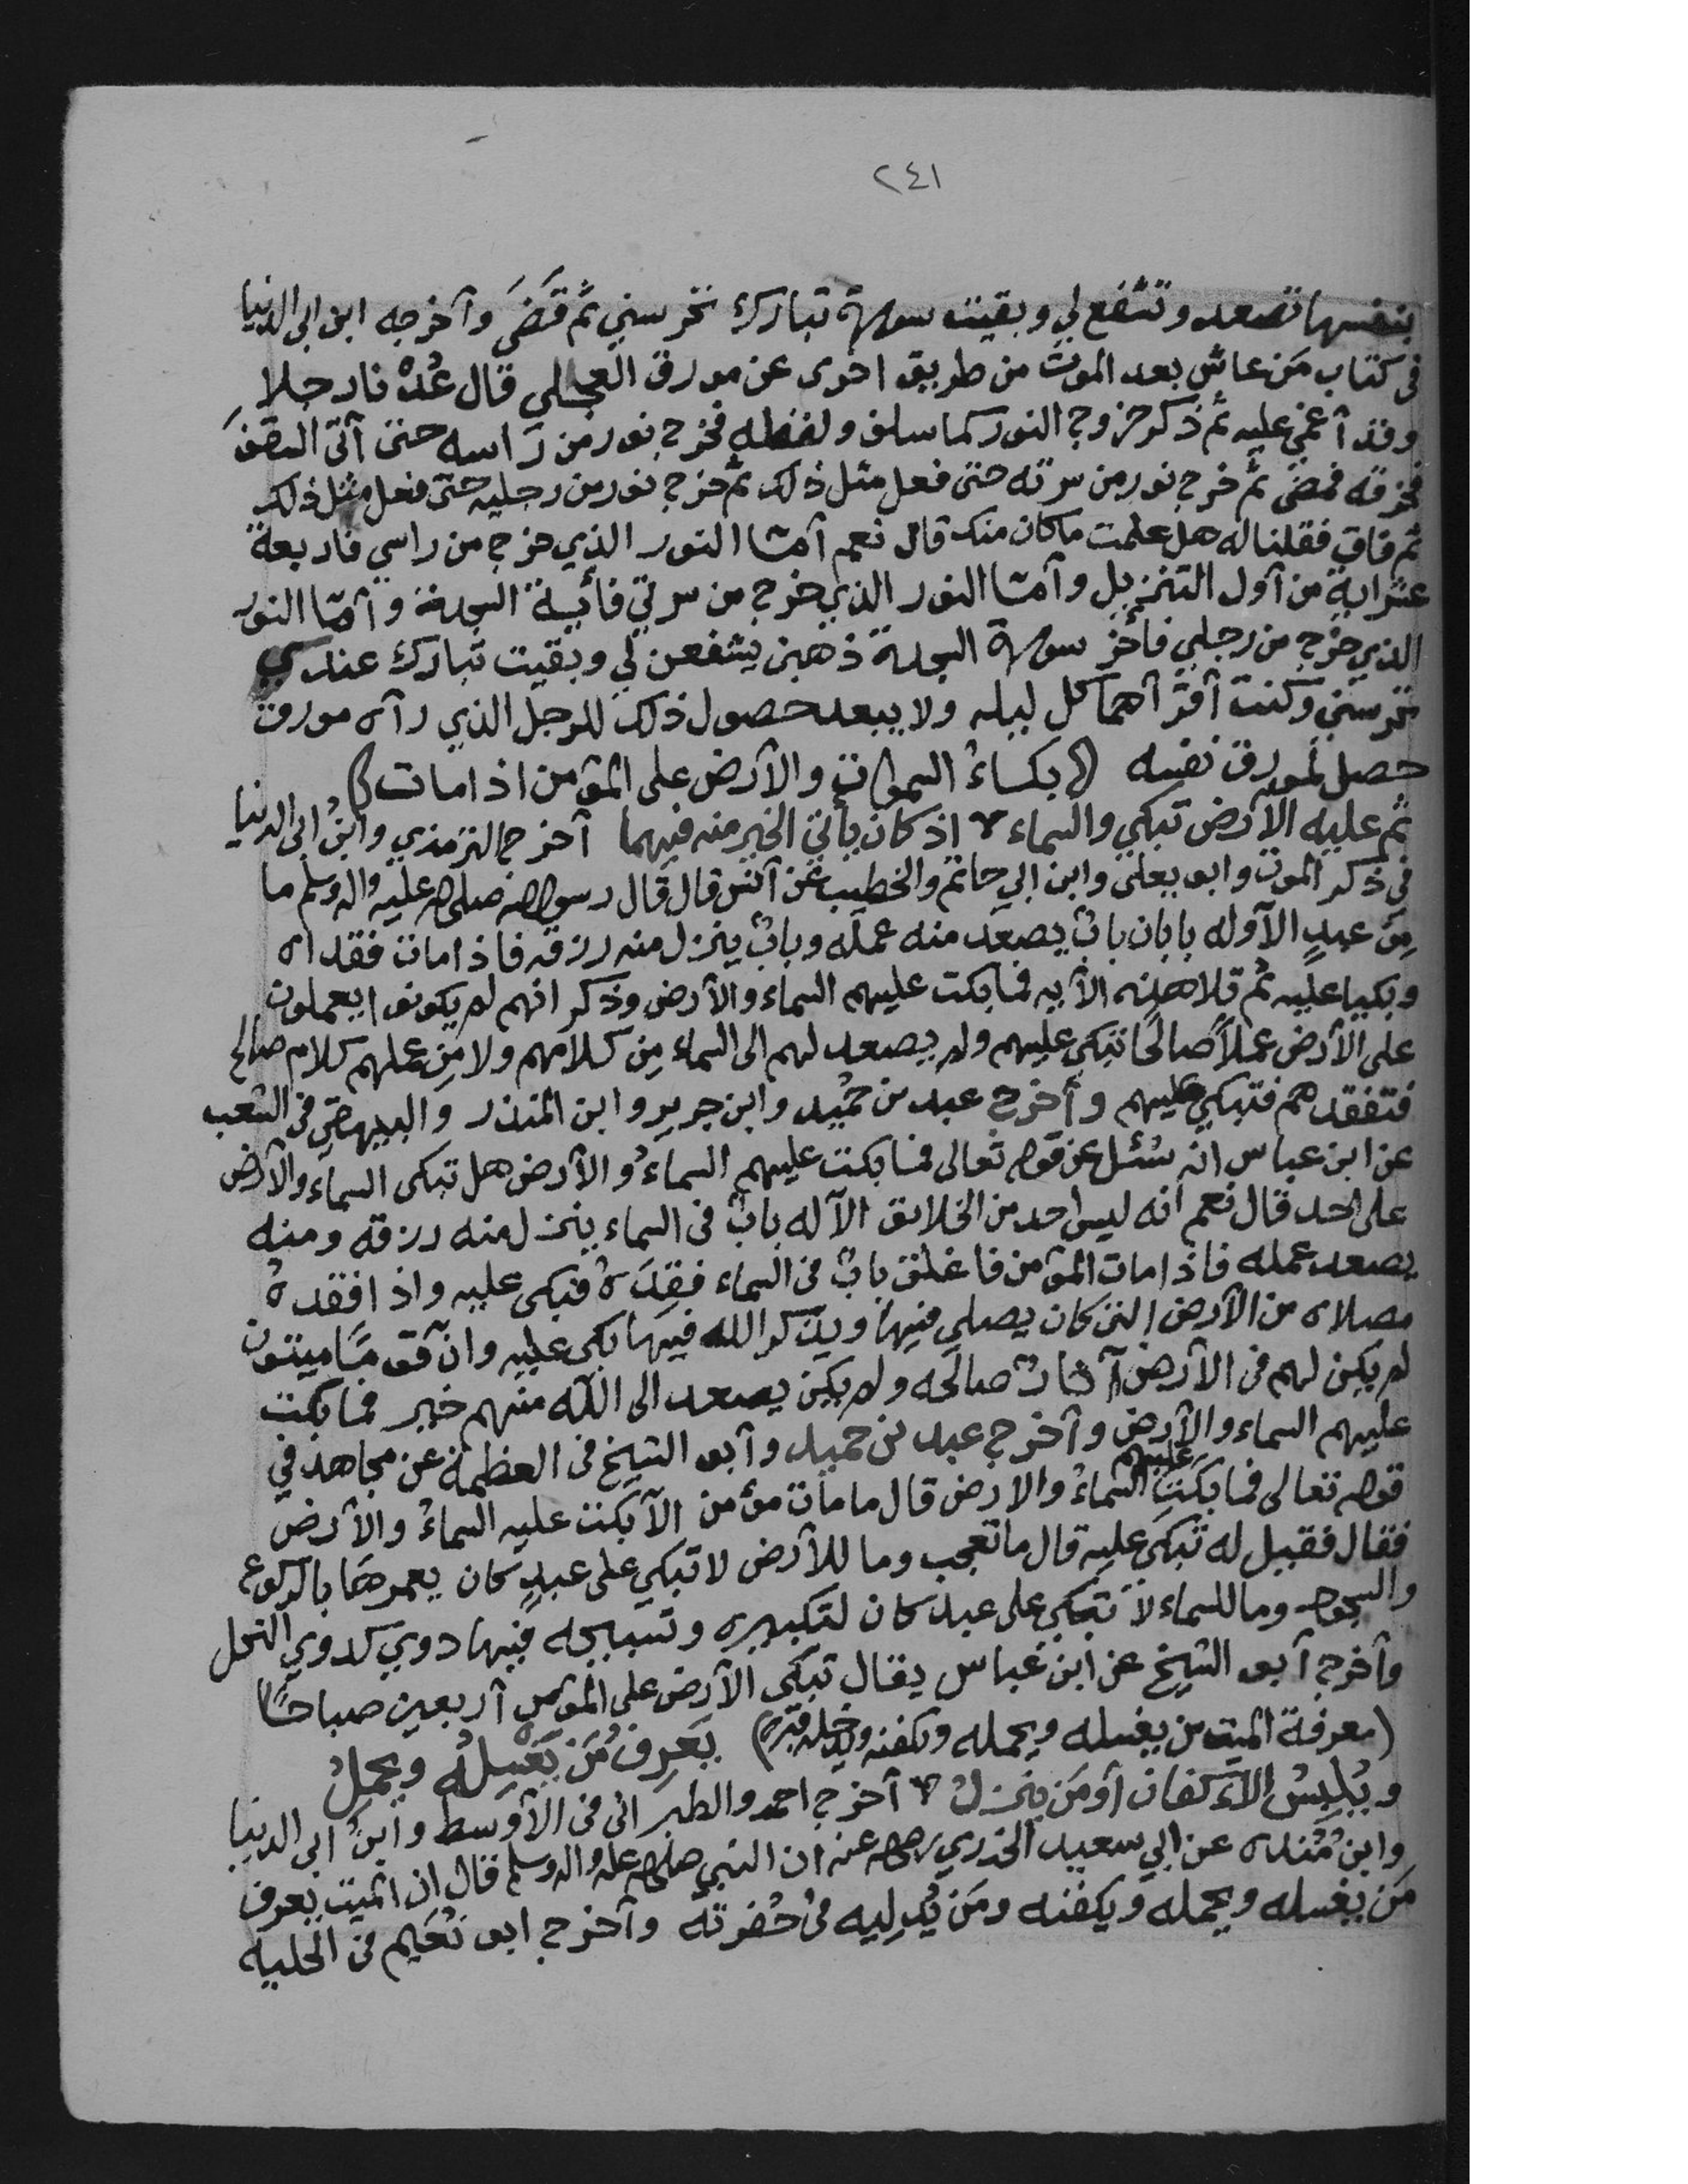 ٢٤١
بنفسها تصعد وتشفع لي وبقيت سورة تبارك تحرسني ثم قَضَى وآخرجه ابن ابى الدنيا
فى كتاب مَن عاش بعد الموت من طريق اخرى عن مورق العجلي قال عُدْنا رجلا
وقد آغمي عليه ثم ذكر خروج النور كما سلف ولفظه فخرج نور من رَاسه حتى آتى السقفَ
فخرقه فمضى ثم خرج نور من سرته حتى فعل مثل ذلك ثم خرج نور من رجليه حتى فعل مثل ذلك
ثم فاق فقلنا له هل علمت ما كان منك قال نعم آمّا النور الذي خرج من راسي فاربعة
عشر اية من آول التنزيل وآمّا النور الذي خرج من سرتي فأية السجدة وآمّا النور
الذي خرج من رجلي فأخر سورة السجدة ذهبن يشفعن لي وبقيت تبارك عندي
تحرسني وكنت آقرآهما كل ليله ولا يبعد حصول ذلك للرجل الذي رآه مورق
حصل لمورق نفسه (بكاءُ السموات والآرض على المؤمن اذا مات)
ثم عليه الآرض تبكي والسماء * اذ كان يأتي الخير منه فيهما آخرج الترمذي وابنُ ابى الدنيا
فى ذكر الموت وابو يعلى وابن ابي حاتم والخطيب عن آنس قال قال رسول الله صلى الله عليه واله وسلم ما
مِن عبدٍ الآ وله بابان بابٌ يصعَد منه عمله وبابٌ ينزل منه رزقه فاذا مات فقداه
وبكيا عليه ثم تلا هذه الآيه فما بكت عليهم السماء والآرض وذكر انهم لم يكونوا يعملون
على الآرض عملاً صالحًا تبكي عليهم ولم يصعد لهم الى السماء مِن كلامهم ولا مِن عملهم كلام صالح
فتفقدهم فتبكي عليهم وأخرج عبد بن حُميد وابن جرير وابن المنذر والبيهقي فى الشعب
عن ابن عباس انه سُئل عن قوله تعالى فما بكت عليهم السماءُ والآرض هل تبكى السماء والآرض
على احد قال نعم انه ليس احد من الخلايق الآ له بابٌ فى السماء ينزل منه رزقه ومنه
يصعد عمله فاذا مات المؤمن فاغلق بابٌ فى السماء فقِدَهُ فبكى عليه واذا فقدهُ
مصلاه من الآرض التى كان يصلي فيها ويذكر الله فيها بكى عليه وانّ قومًا ميتون
لم يكن لهم فى الآرض آثارٌ صالحه ولم يكن يصعد الى الله منهم خير فما بكت
عليهم السماء والآرض وآخرج عبد بن حميد وآبو الشيخ فى العظمة عن مجاهد في
قوله تعالى فما بكَتِ عليهم السماءُ والارض قال ما مات مؤمن الآ بكت عليه السماءُ والآرض
فقال فقيل له تبكى عليه قال ما تعجب وما للآرض لا تبكي على عبدٍ كان يعمرها بالركوع
والسجود وما للسماء لا تبكي على عبد كان لتكبيره وتسبيحه فيها دوي كدوي النحل
وآخرج آبو الشيخ عن ابن عباس يقال تبكى الآرض على المؤمن آربعين صباحًا
(معرفة الميت من يغسله ويحمله وكفنه ويدخله قبره) يَعَرِفُ مَن يَغْسِلُهُ ويحملُ
ويُلبِسُ الآكفان آو مَن ينزلُ * آخرج احمد والطبرانى فى الآوسط وابنُ ابى الدنيا
وابنُ مُنده عن ابي سعيد الخدري رضي الله عنه ان النبي صلى الله عليه واله وسلم قال ان الميت يعرف
مَن يغسله ويحمله ويكفنه ومَن يُدليه فى حُفرته وآخرج ابو نُعَيم فى الحليه